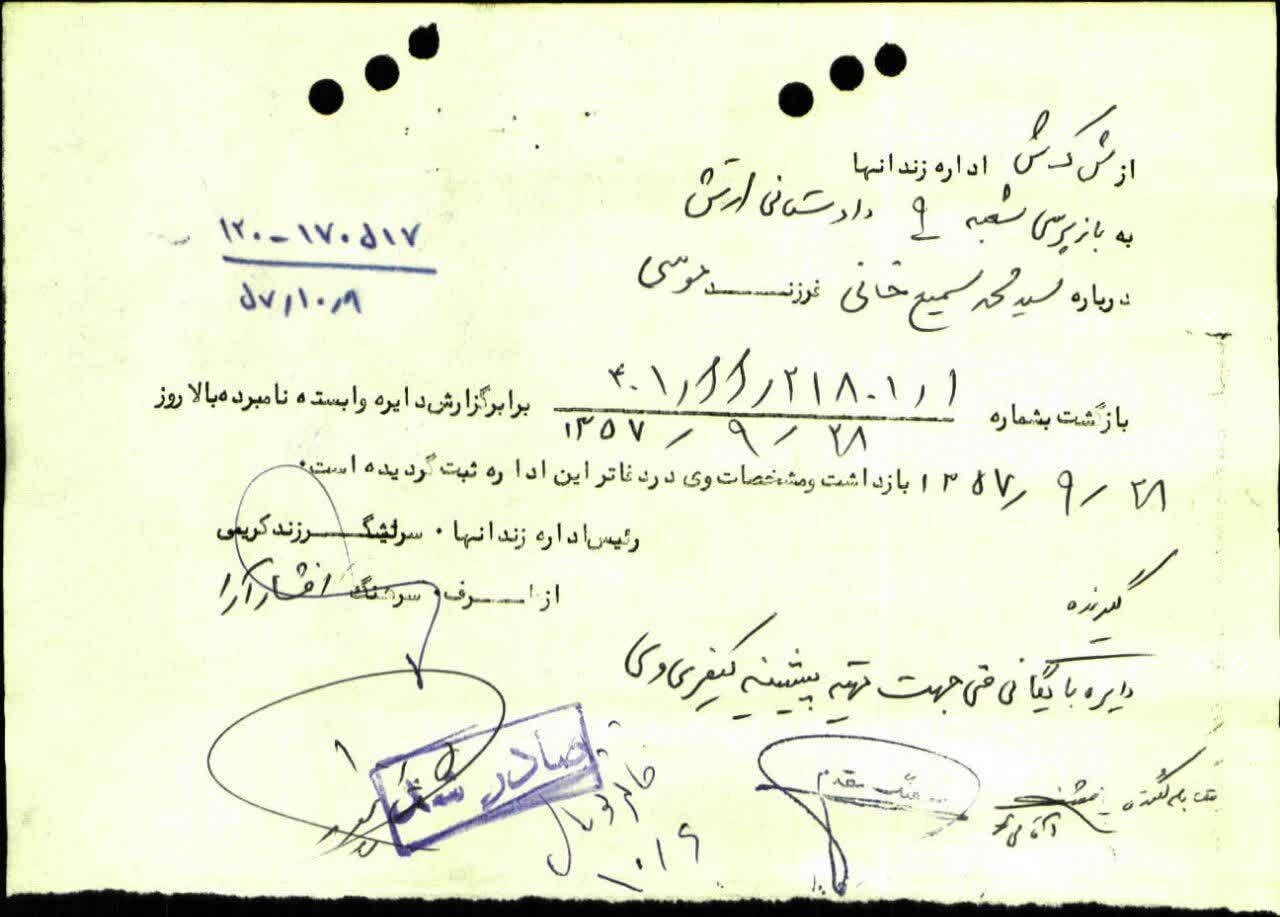 از ش ک ش اداره زندانها
به بازپرسی شعبه ۹ دادستانی ارتش
درباره سید محمد سمیع خانی فرزند موسی
۱۲۰-۱۷۰۵۱۷
۵۷/۱۰/۹
بازگشت بشماره ۴۰۱/۱۱/۲۱۸۰۱/۱ برابر گزارش دایره وابسته نامبرده بالا روز
۱۳۵۷/۹/۲۸
۱۳۵۷/۹/۲۸ بازداشت و مشخصات وی در دفاتر این اداره ثبت گردیده است.
رئیس اداره زندانها. سرلشگر زندکریمی
از طرف. سرهنگ افشارآرا
گیرنده
دایره بایگانی فنی جهت تهیه پیشینه کیفری وی
صادر شد
سرهنگ مقدم
۱۰/۹